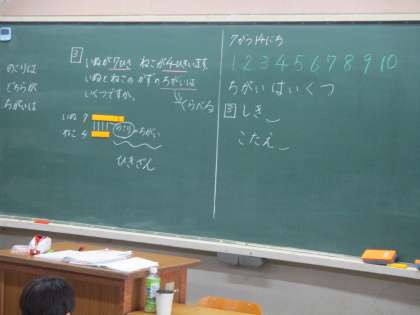 のこりは
どちらが
ちがいは
3 いぬが7ひき ねこが4ひきいます。
いぬとねこの かずの ちがいは
いくつですか。
くらべる
いぬ 7
ねこ 4
のこり
ちがい
ひきざん
7がつ14にち
1 2 3 4 5 6 7 8 9 10
ちがいはいくつ
3 しき
こたえ